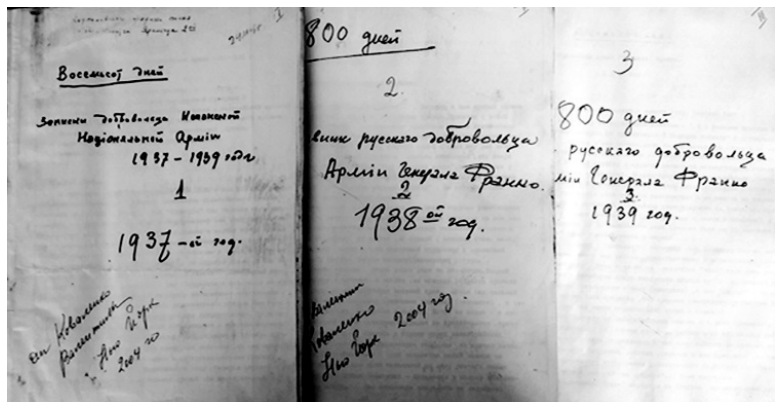 Восемьсот дней
Записки добровольца Испанской
Національной Арміи
1937 – 1939 годы
1
1937-ой год.
Коваленко
Валентины
Нью Йорк
2004 го
800 дней
2.
русскаго добровольца
Арміи Генерала Франко.
2
1938 ой год.
Валентин
Коваленко
Нью Йорк 2004 год.
3
800 дней
русскаго добровольца
міи Генерала Франко
3.
1939 год.